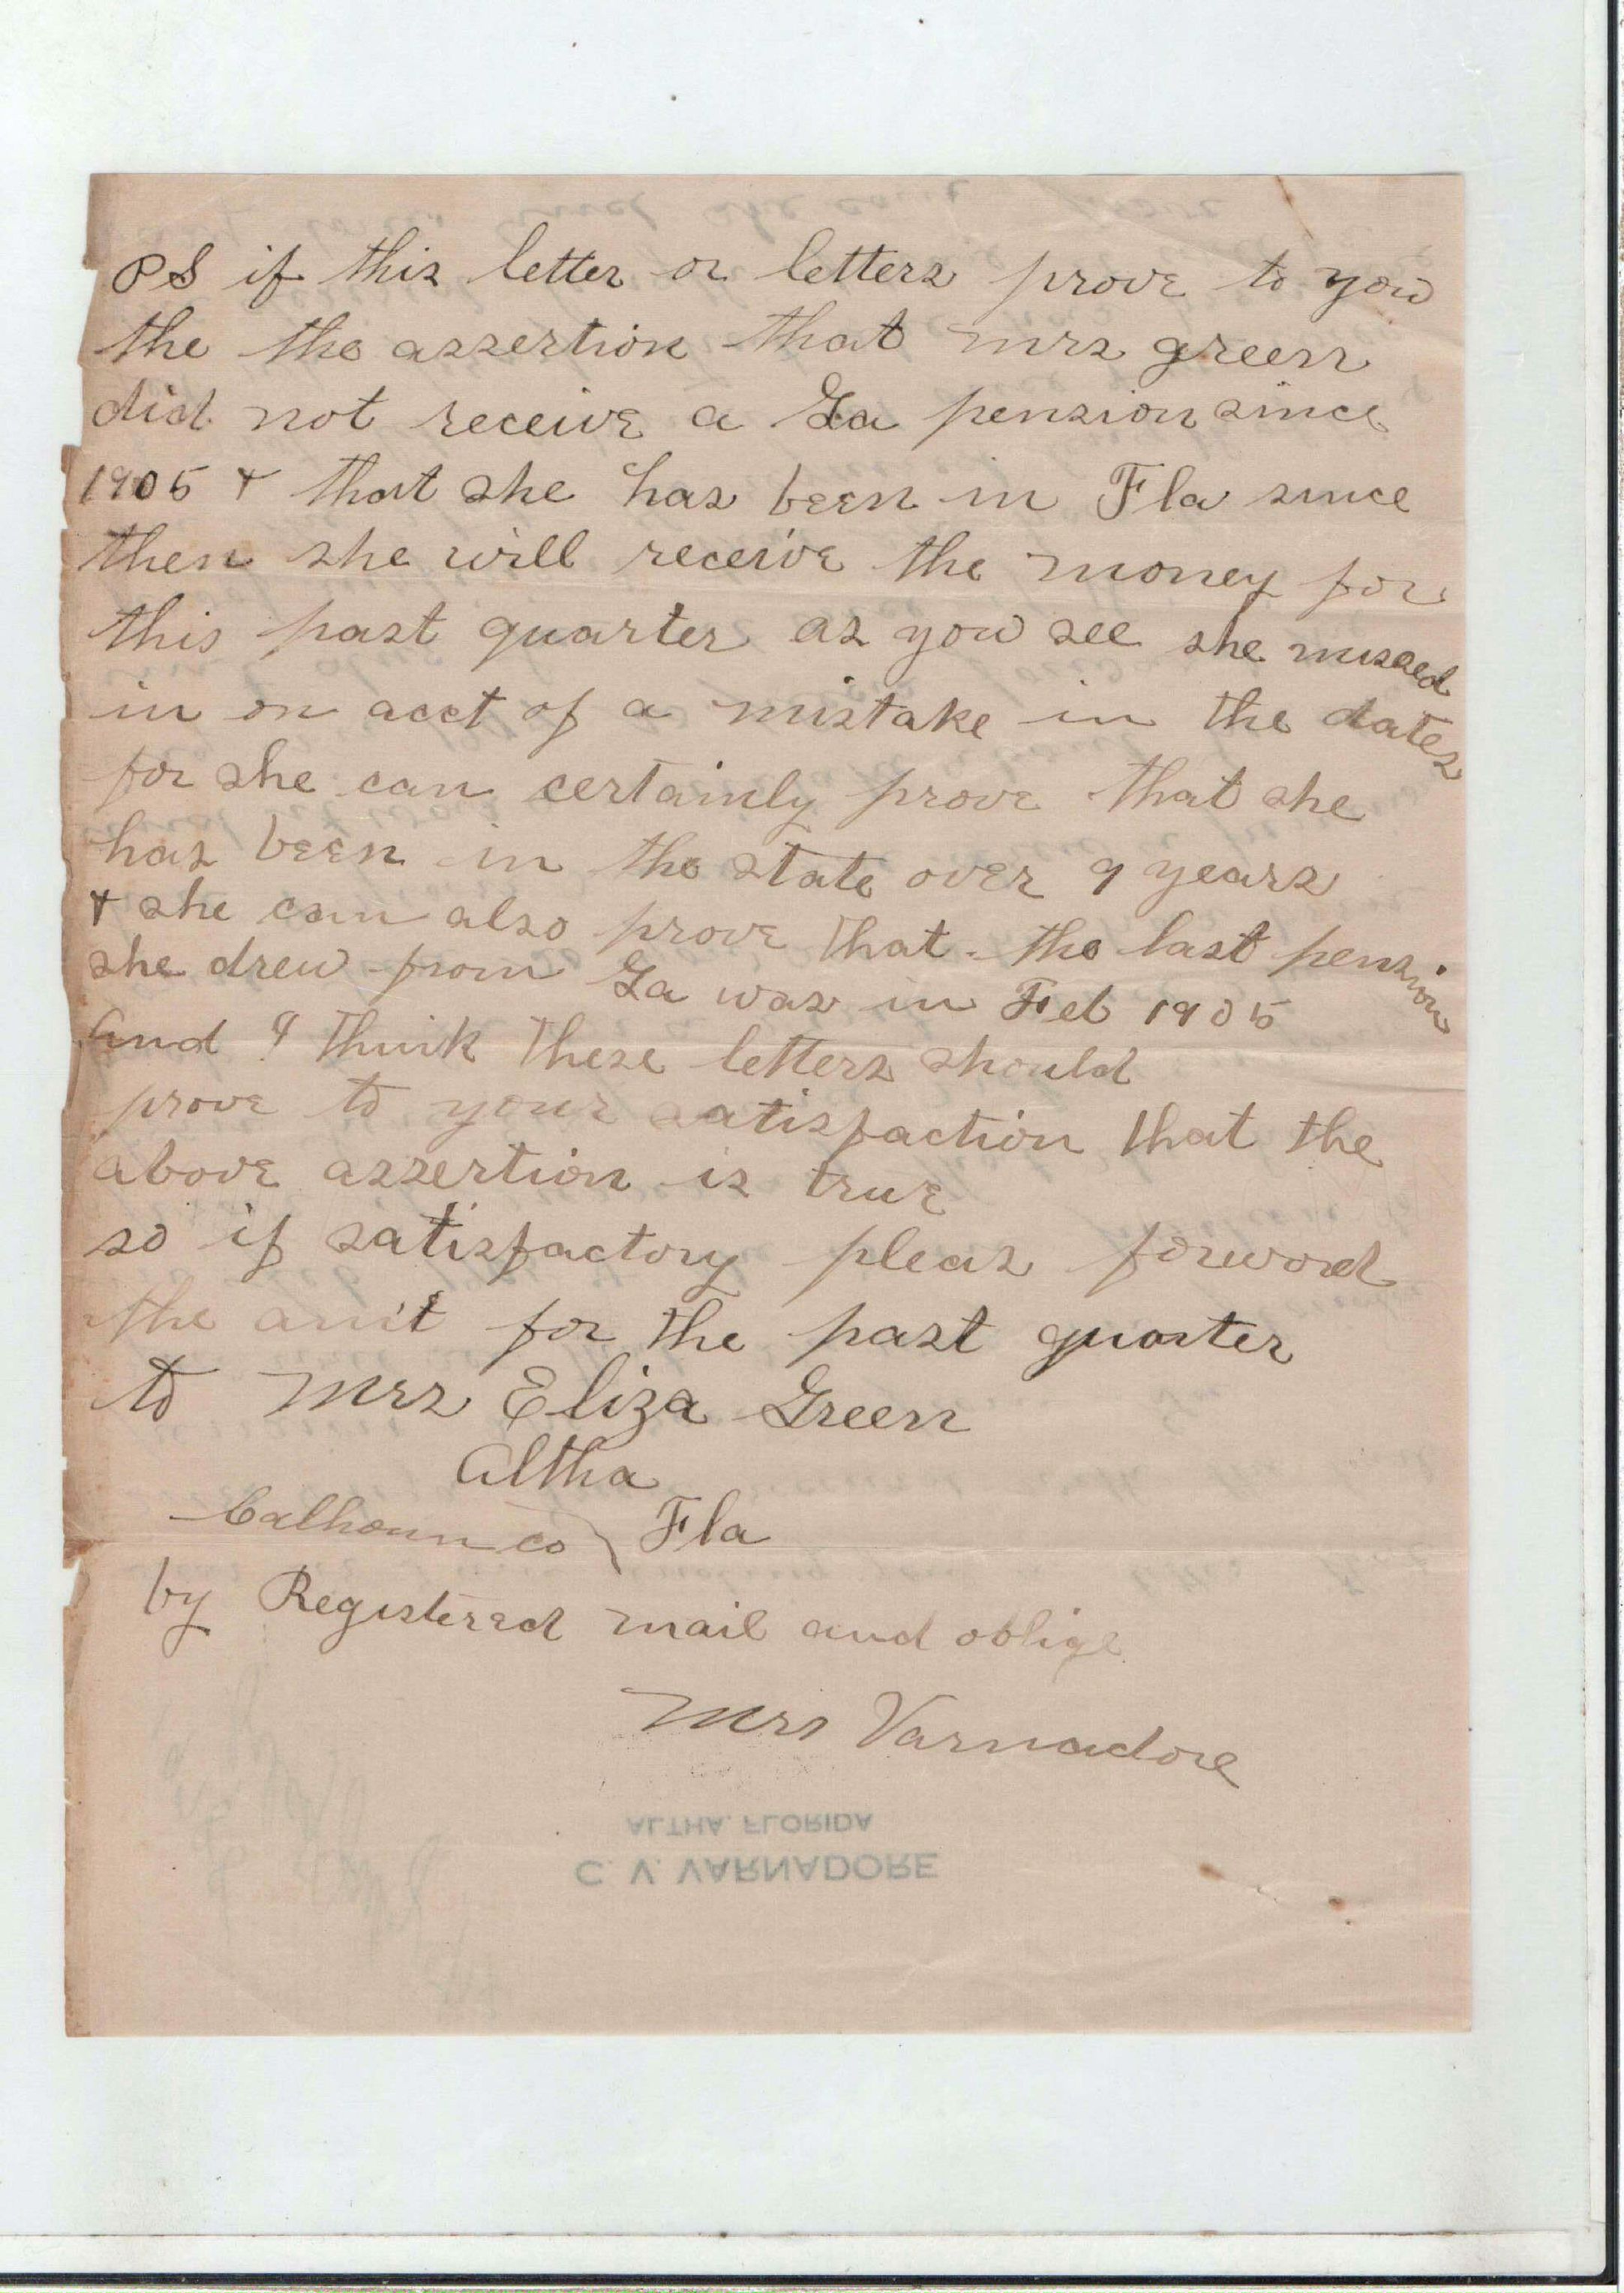 PS if this letter or letters prove to you
the the assertion that mrs green
did not receive a Ga pension since
1905 & that she has been in Fla since
then she will receive the money for
this past quarter as you see she missed
in on acct of a mistake in the dates
for she can certainly prove that she
has been in the state over 9 years
& she can also prove that the last pension
she drew from Ga was in Feb 1905
and I think these letters should
prove to your satisfaction that the
above assertion is true
so if satisfactory pleas forword
the am't for the past quarter
to Mrs Eliza Green
Altha
Calhoun co Fla
by Registered mail and oblige
Mrs Varnadore
ALTHA, FLORIDA
C. V. VARNADORE